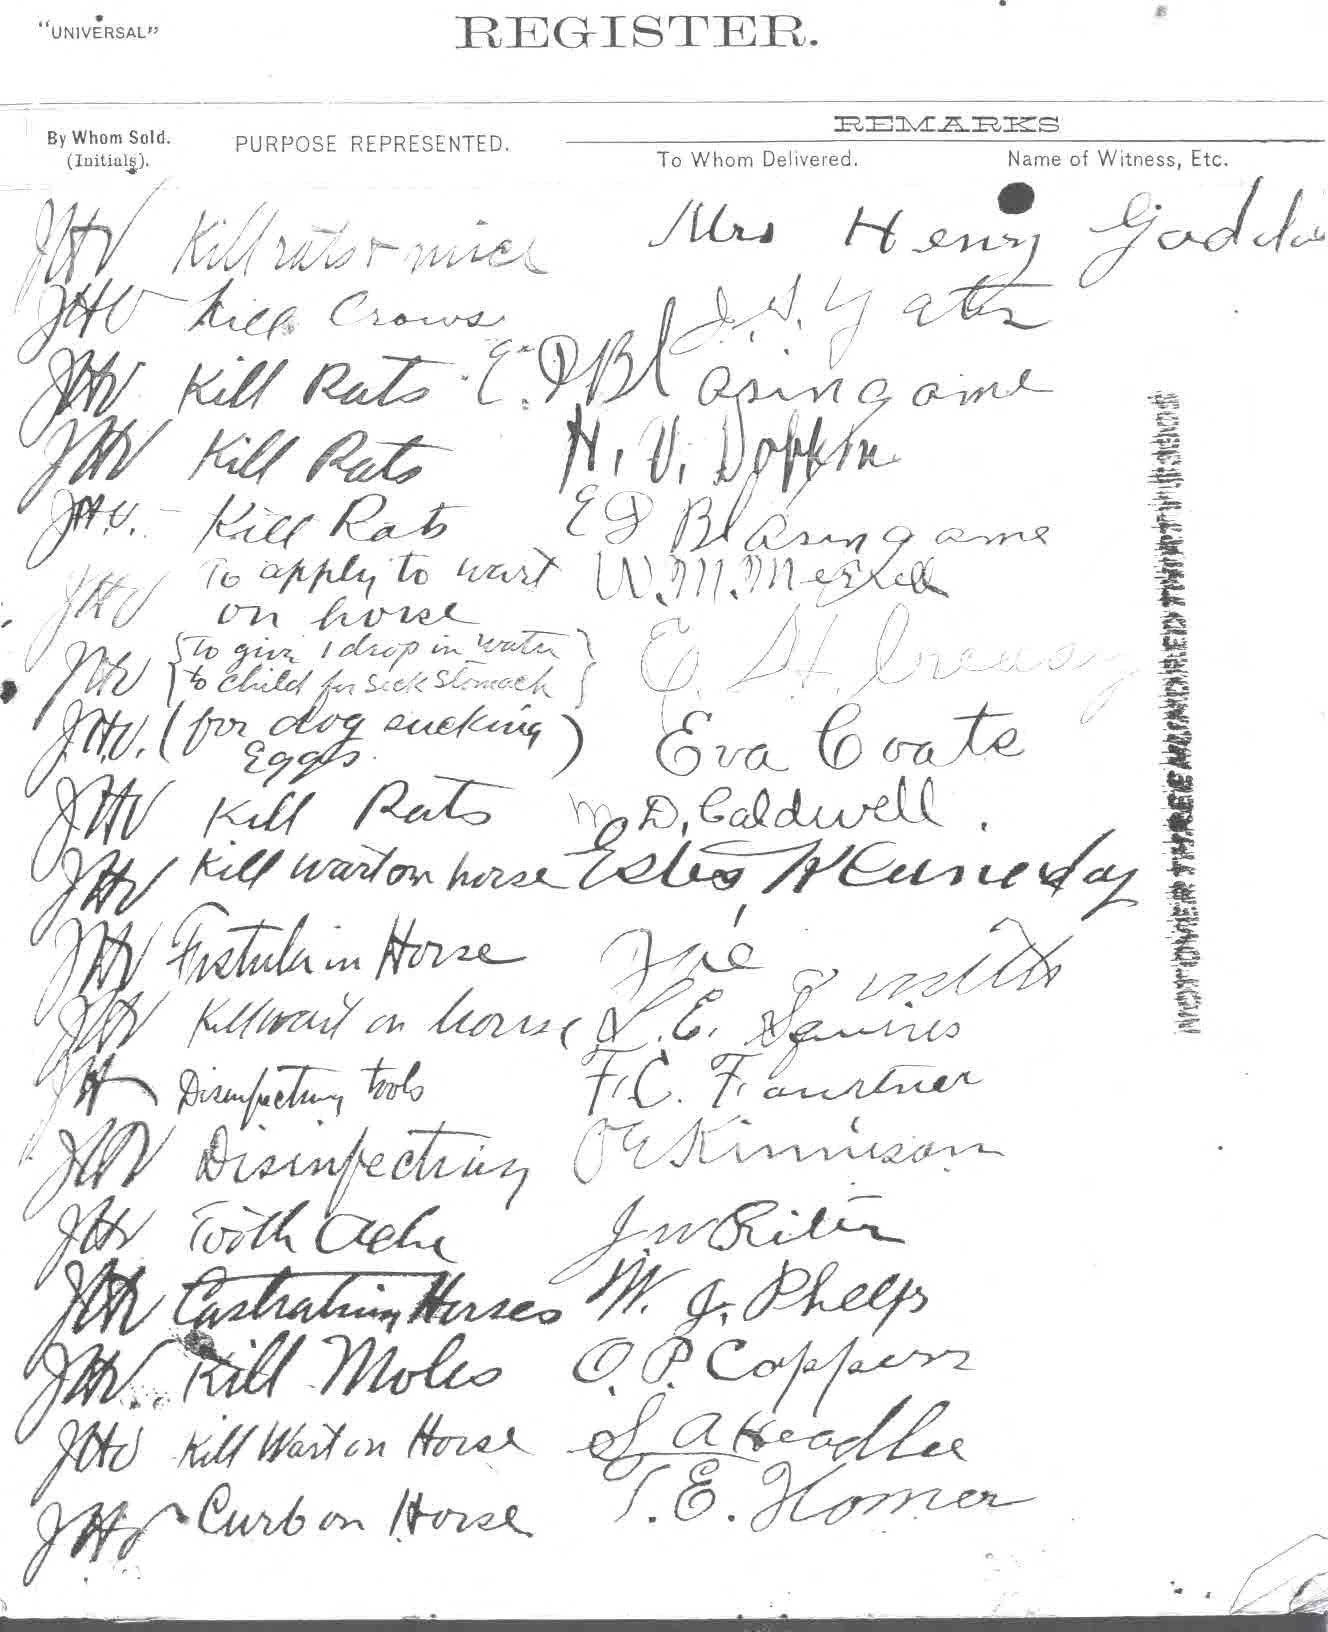 "UNIVERSAL" REGISTER.
REMARKS
By Whom Sold. (Initials). PURPOSE REPRESENTED. To Whom Delivered. Name of Witness, Etc.
JHV Kill rats + mice Mrs Henry
JHV Kill Crows J. Yates
JHV Kill Rats E. P Blasingame
JHV Kill Rats H. V.
JHV. Kill Rats E P Blasingame
JHV To apply to wart on horse W. M. Merrell
JHV {To give 1 drop in water to child for sick stomach} E. H.
JHV. (for dog sucking Eggs.) Eva Coats
JHV Kill Rats M D. Caldwell.
JHV Kill wart on horse Estes Kennerday
JHV Fistula in Horse Smith
JHV Kill wart on horse S. E. Squires
JH Disinfecting tools F. C. Faurtner
JHV Disinfecting O E Kinnison
JHV Tooth Ache J. W Riter
JHV Castrating Horses W. J. Phelps
JHV. Kill Moles O. P. Coppenn
JHV Kill Wart on Horse S A Headlee
JHV Curb on Horse T. E. Homer
NOT OVER THREE HUNDRED THIRTY